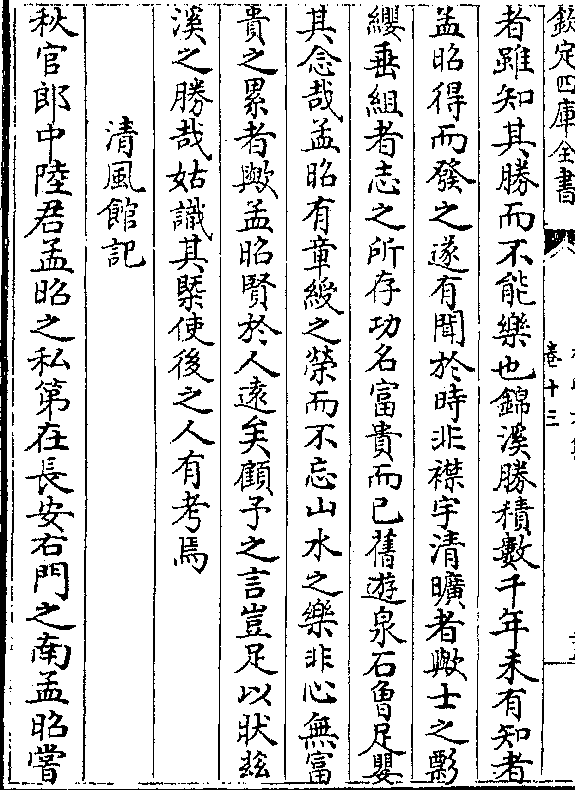 欽定四庫全書
卷十三
者雖知其勝而不能樂也錦溪勝積數千年未有知者
孟昭得而發之遂有聞於時非襟宇清曠者歟士之影
纓垂組者志之所存功名富貴而已舊遊泉石曾足嬰
其念哉孟昭有章綬之榮而不忘山水之樂非心無富
貴之累者歟孟昭賢於人遠矣顧予之言豈足以狀兹
溪之勝哉姑識其槩使後之人有考焉
清風館記
秋官郎中陸君孟昭之私第在長安右門之南孟昭嘗